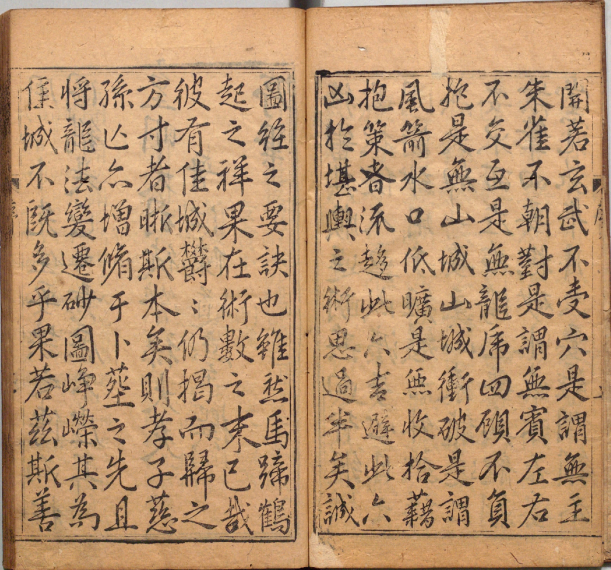 開若玄武不受穴是謂無主
朱雀不朝對是謂無賓左右
不交互是無龍虎四顧不負
抱是無山城山城衝破是謂
風箭水口低曠是無收拾藉
抱策者流趍此六吉避此六
凶扵堪輿之術思過半矣誠
圖經之要訣也雖然馬蹄鶴
起之祥果在術數之末已哉
彼有佳城欝〻仍揭而歸之
方寸者晰斯本矣則孝子慈
孫亡亦增脩于卜塟之先且
将龍法變遷砂圖崢嶸其為
佳城不既多乎果若茲斯善
序